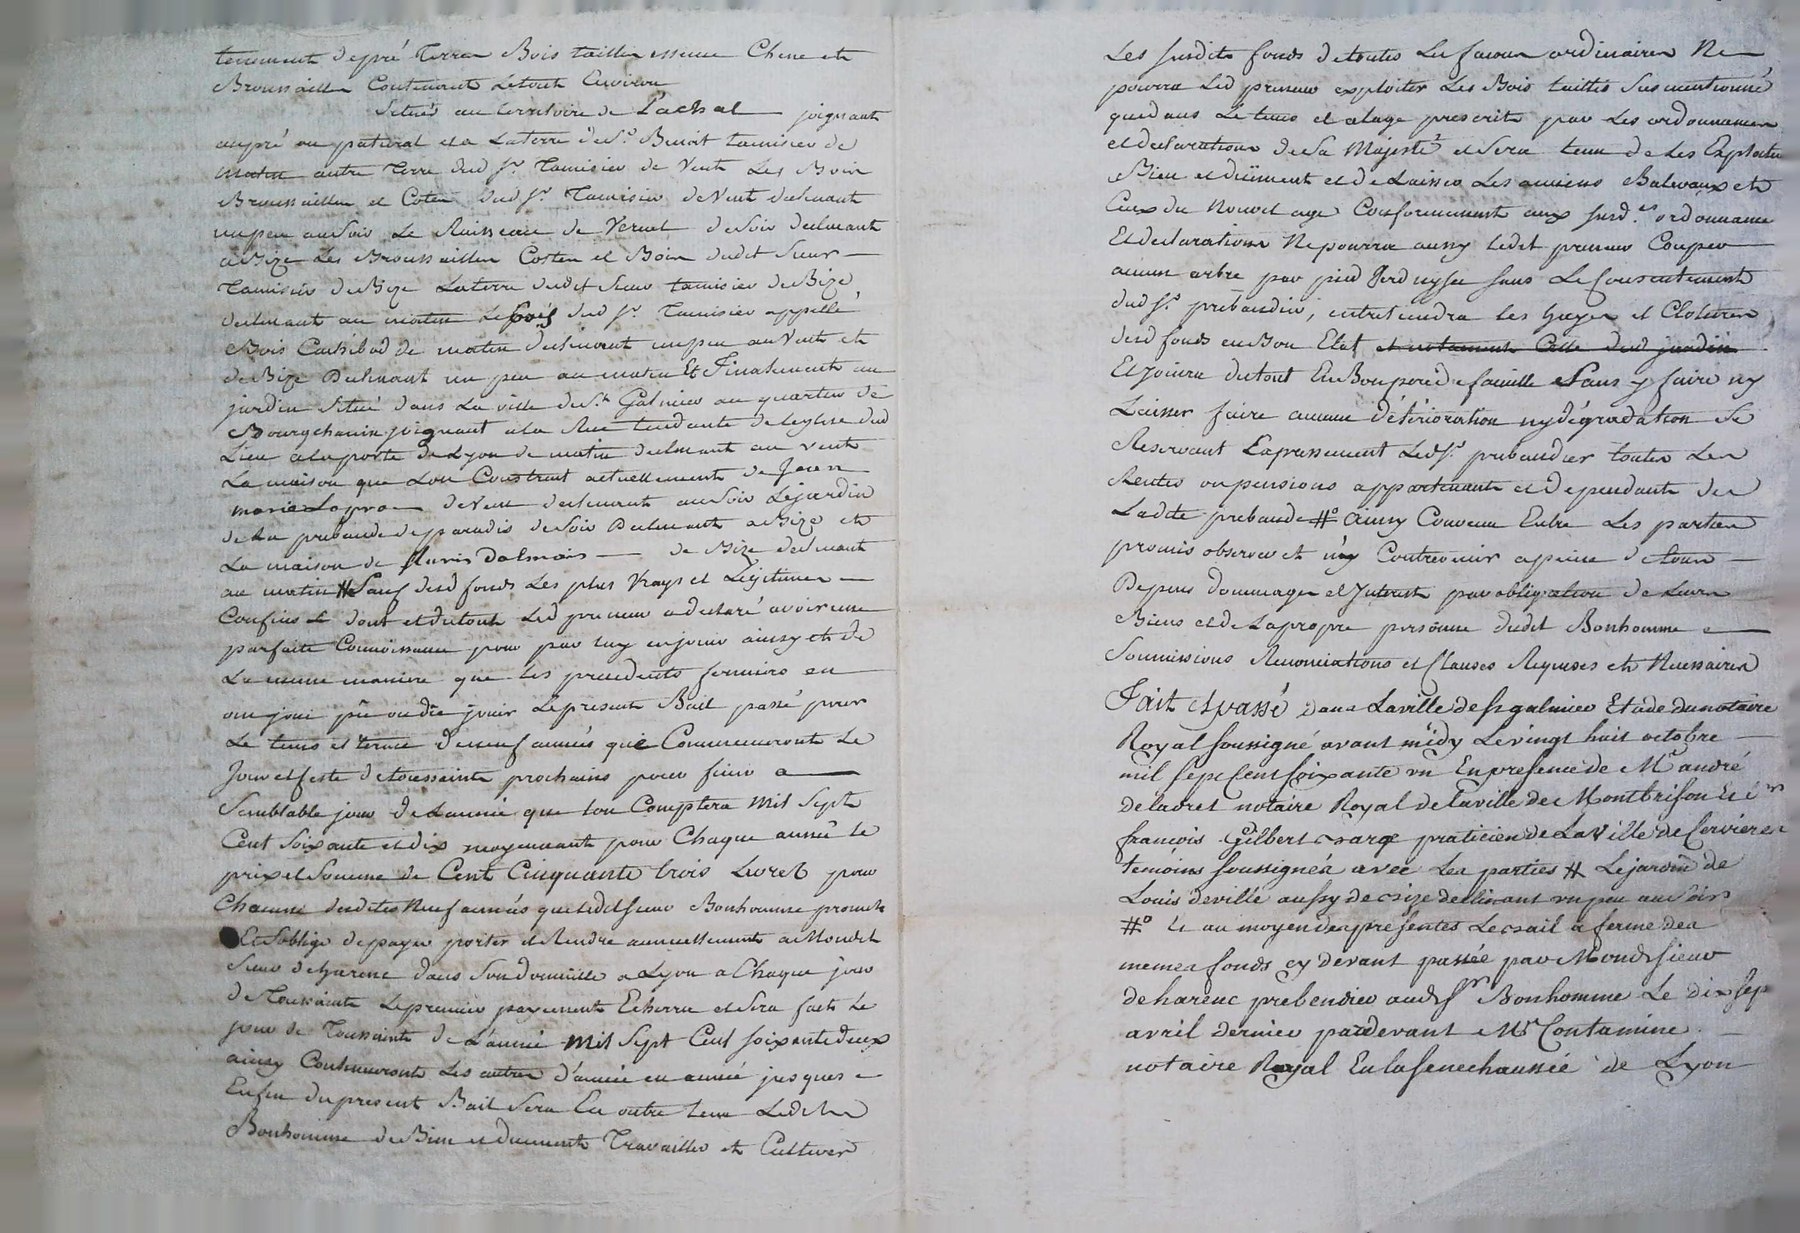 tenement de pré Terre Bois taillis essence Chene et
Broussailles Contenant Letout Environ
Situés au territoire de Lachal joignant
aupré ou patural et a Laterre de Sr. Benoit tamisier de
matin autre Terre dud Sr. Tamisier de Vent Les Bois
Broussailles et Coten dud Sr. Tamisier de Vent declinant
unpeu au Soir Le Ruisseau de Vernet de Soir declinant
a Bize Les Broussailles Costen et Bois dudit Sieur
Tamisier de Bize Laterre dudit Sieur tamisier de Bize
declinant au matin Le bois dud Sr. Tamisier appellé
Bois de matin declinant unpeu au Vent et
de Bize Declinant un peu au matin Et Finalement au
jardin Situé dans La ville de St. Galmier au quartier de
Bourgchanin joignant a la Rue tendante de leglise dud
Lieu a la porte de Lyon de matin declinant au vent
La maison que Lon Construit actuellement de Jean
marie Lapra de Vent declinant au Soir Le jardin
de La prebande de paradis de Soir Declinant a Bize et
La maison de Dalmais de Bize declinant
au matin # Sauf desd fonds Les plus Vrays et Légitimes
Confins Et dont et du tout Led preneur a declaré avoir une
parfaite Connoissance pour par luy en jouir ainsy et de
La meme maniere que les precedents fermiers en
ont joui pû ou dû jouir Le present Bail passé pour
Le tems et terme de neuf années qui Commenceront Le
Jour et feste de toussaints prochains pour finir a
Semblable jour de Lannée que lon Comptera Mil Sept
Cent Soixante et dix moyennant pour Chaque année le
prix et Somme de Cent Cinquante trois Livres pour
Chacune desdites Neuf années que ledit Sieur Bonhomme promet
Et Soblige de payer porter et Rendre annuellement a Mondit
Sieur deharenc dans Son domicille a Lyon a Chaque jour
de Toussaints Le premier payement Echerra et Sera fait Le
jour de Toussaints de L'année Mil Sept Cent Soixante deux
ainsy Continueront Les autres d'année en année jusques a
En fin du present Bail Sera En outre tenu Ledit Sr
Bonhomme de Bien et duement Travailler et Cultiver
Les Susdits fonds de toutes Les facons ordinaires Ne
pourra Led preneur exploiter Les Bois taillis Susmentionné
que dans Le tems et alage prescrits par Les ordonnances
et declarations de Sa Majesté et Sera tenu de Les Exploiter
Bien et düement et de Laisser Les anciens Baliveaux et
Ceux du Nouvel age Conformement aux Susd.es ordonnance
Et declarations Ne pourra aussy ledit preneur Couper
aucun arbre par pied Verd ny Sec Sans Le Consentement
dud Sr. prebandier, entretiendra les hayes et Clotures
desd fonds en Bon Etat et notament Celle dud jardin
Et jouira du tout En Bon pere de famille Sans y faire ny
Laisser faire aucune détérioration ny dégradation Se
Reservant Expressement Led Sr. prebandier toutes Les
Rentes ou pensions appartenante et Dependante de
Ladite prebande #o Ainsy Convenu Entre Les parties
promis observer et n'y Contrevenir a peine de tous
Depens dommages et Interest par obligation de Leurs
Biens et de La propre personne dudit Bonhomme
Soumissions Renonciations et Clauses Requises et Necessaires
Fait et passé dans La ville de St galmier Etude du notaire
Royal Soussigné avant midy Le vingt huit octobre
mil Sept Cent Soixante un En presence de Mr. andré
deladret notaire Royal de la ville de Montbrison et
francois Gilbert praticien de La Ville de Cervieres
temoins Soussignés avec Les parties # Le jardin de
Louis deville aussy de Bize declinant un peu au Soir
#o Et au moyen des présentes Le bail a ferme des
memes fonds cy devant passée par Mondit Sieur
de harenc prebendier aud Sr Bonhomme Le dix sep
avril dernier pardevant Mr Contamine
notaire Royal En la Senechaussée de Lyon